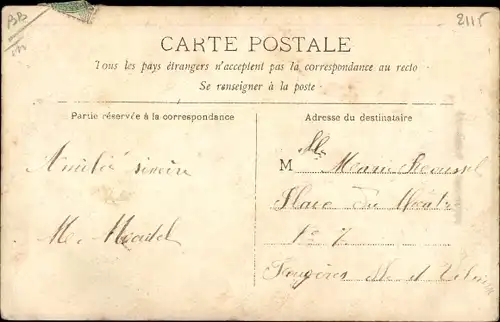 2115
CARTE POSTALE
Tous les pays étrangers n'acceptent pas la correspondance au recto
Se renseigner à la poste
Partie réservée à la correspondance
Adresse du destinataire
Amitié sincère
M
Mlle Marie
Place du Théâtre
No 7
Fougères Ille et Vilaine